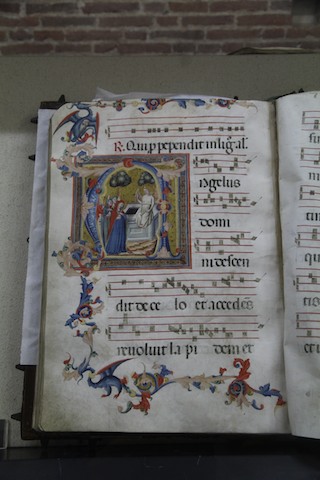 R. Qui pependit in lig. al.
A
ngelus
domi
ni descen
dit de ce lo et accedēs
revolvit lapi dem et
qu
ti
m